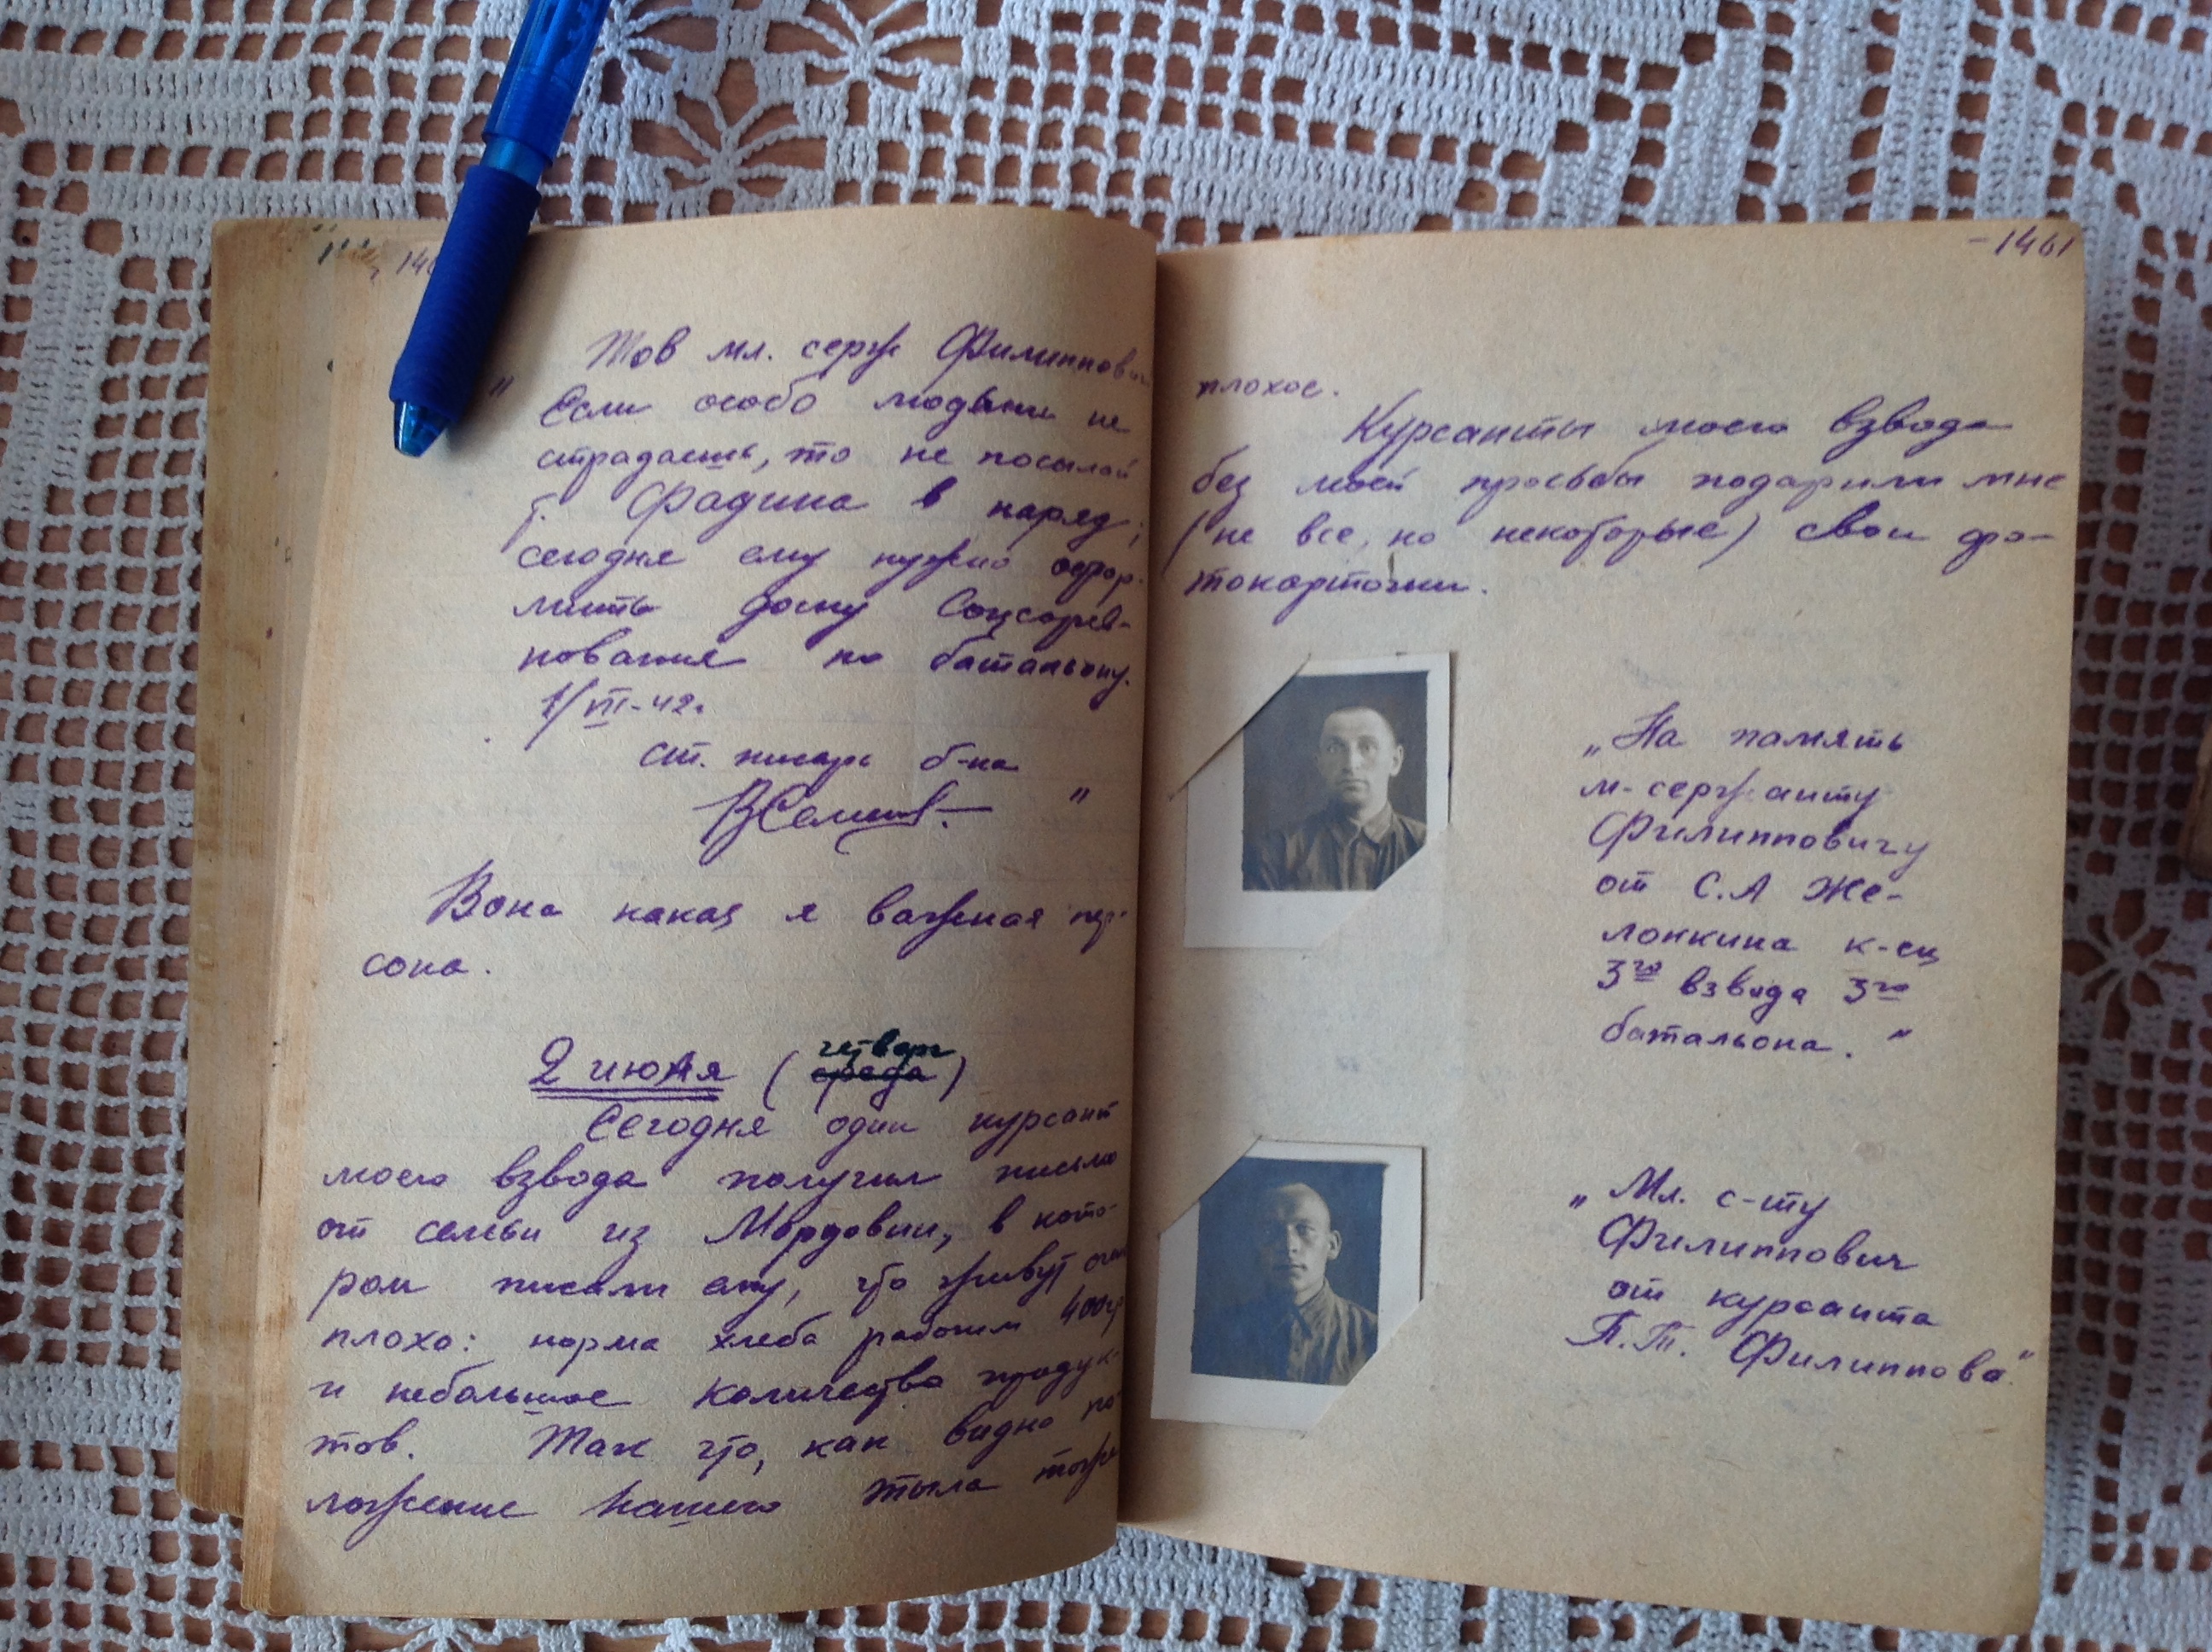 Тов мл. серж Филиппович
„ Если особо людьми не
страдаешь, то не посылай
т. Фадина в наряд;
сегодня ему нужно офор-
мить доску Соцсорев-
нования по батальону.
1/VII-42г
ст. писарь б-на
"
Вона какая я важная пер-
сона.
2 июля (четверг среда)
Сегодня один курсант
моего взвода получил письмо
от семьи из Мордовии, в кото-
ром писали ему, что живут очень
плохо: норма хлеба рабочим 400гр
и небольшое количество продук-
тов. Так что, как видно по-
ложение нашего тыла тоже
-1461
плохое.
Курсанты моего взвода
без моей просьбы подарили мне
(не все, но некоторые) свои фо-
токарточки.
„На память
м-сержанту
Филипповичу
от С.А Же-
лонкина к-си
3го взвода 3го
батальона."
„Мл. с-ту
Филиппович
от курсанта
П.Т. Филиппова."